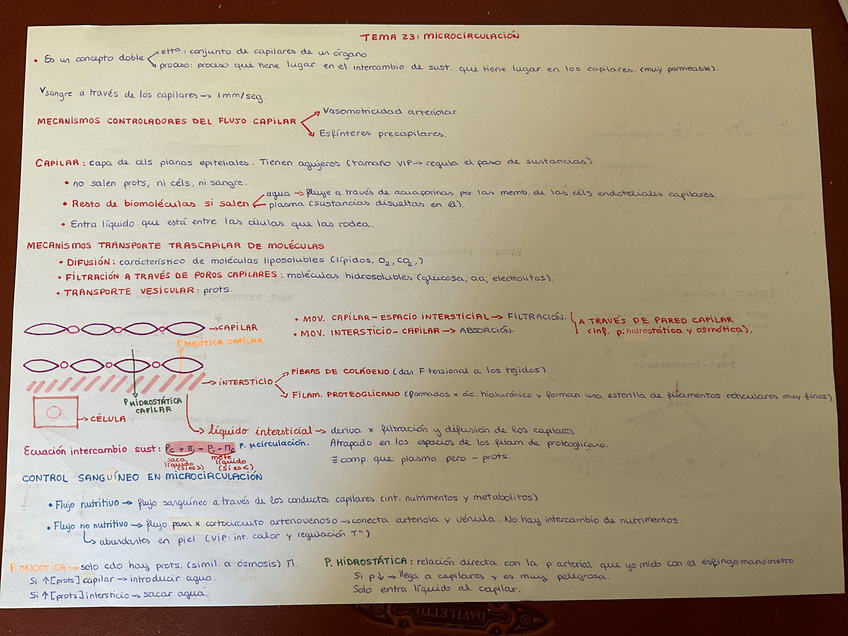 TEMA 23: MICROCIRCULACIÓN
• Es un concepto doble
etta: conjunto de capilares de un órgano.
proceso: proceso que tiene lugar en el intercambio de sust. que tiene lugar en los capilares. (muy permeable).
Vsangre a través de los capilares → 1mm/seg.
MECANISMOS CONTROLADORES DEL FLUJO CAPILAR
Vasomotricidad arteriolar.
Esfínteres precapilares.
CAPILAR: capa de clls planas epiteliales. Tienen agujeros (tamaño VIP → regula el paso de sustancias).
• no salen prots, ni céls, ni sangre.
• Resto de biomoléculas si salen
agua → fluye a través de acuaporinas por las memb. de las clls endoteliales capilares.
plasma (sustancias disueltas en él).
• Entra líquido que está entre las células que las rodea.
MECANISMOS TRANSPORTE TRASCAPILAR DE MOLÉCULAS
• DIFUSIÓN: característico de moléculas liposolubles (lípidos, O2, CO2,)
• FILTRACIÓN A TRAVÉS DE POROS CAPILARES: moléculas hidrosolubles (glucosa, aa, electrolitos).
• TRANSPORTE VESICULAR: prots.
→ CAPILAR
P. ONCÓTICA CAPILAR
• MOV. CAPILAR-ESPACIO INTERSTICIAL → FILTRACIÓN.
• MOV. INTERSTICIO-CAPILAR → ABSORCIÓN.
A TRAVÉS DE PARED CAPILAR
(inf. p. hidrostática y osmótica).
→ INTERSTICIO
FIBRAS DE COLÁGENO (dan F tensional a los tejidos).
FILAM. PROTEOGLICANO (formados x ác. hialurónico y forman una esterilla de filamentos reticulares muy finos)
P HIDROSTÁTICA CAPILAR
→ CÉLULA
líquido intersticial → deriva x filtración y difusión de los capilares.
Atrapado en los espacios de los filam de proteoglicano.
≡ comp. que plasma pero - prots.
Ecuación intercambio sust: Pc + πi - Pi - πc P. μcirculación.
saca líquido (si es >)
mete líquido (si es <)
CONTROL SANGUÍNEO EN MICROCIRCULACIÓN
• Flujo nutritivo → flujo sanguíneo a través de los conductos capilares (int. nutrimentos y metabolitos).
• Flujo no nutritivo → flujo pasa x cortocircuito arteriovenoso → conecta arteriola y vénula. No hay intercambio de nutrimentos.
abundantes en piel (VIP: int. calor y regulación Tª)
P. ONCÓTICA → solo cdo hay prots. (simil. a ósmosis) π.
Si ↑ [prots] capilar → introducir agua.
Si ↑ [prots] intersticio → sacar agua.
P. HIDROSTÁTICA: relación directa con la p arterial. que yo mido con el esfingomanómetro
Si p↓ → llega a capilares y es muy peligrosa.
Solo entra líquido al capilar.
DAVILETTO